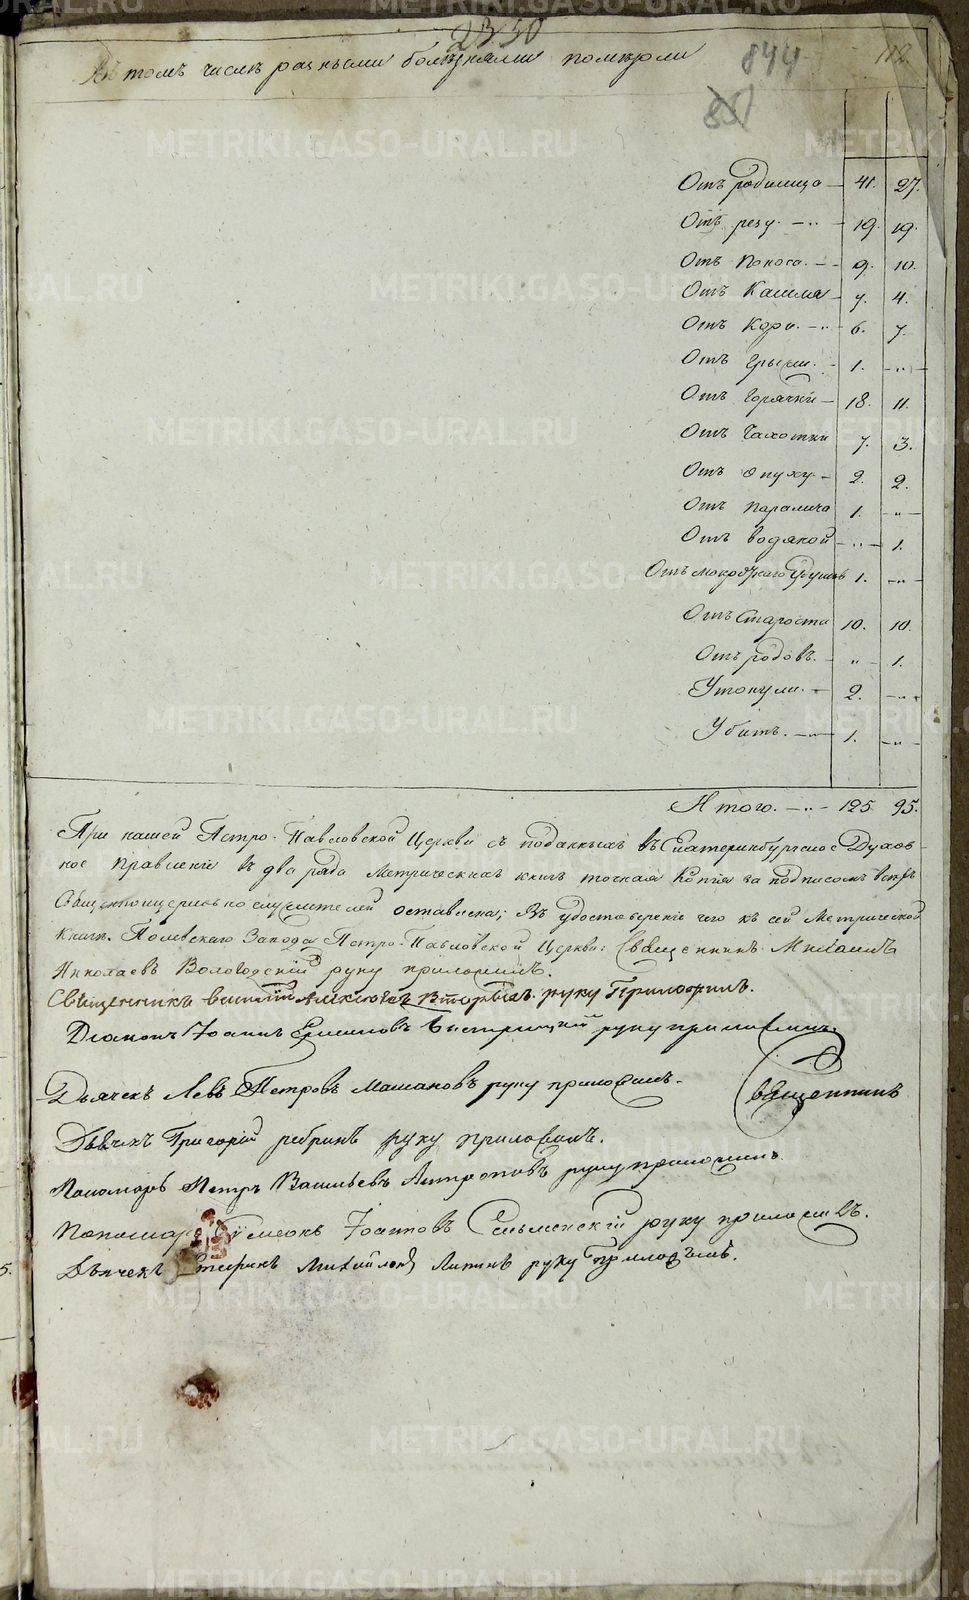 2330
Въ томъ числѣ разными болѣзнями померли 844 112
851
Отъ родимца — 41. 27.
Отъ резу. — „ — 19. 19.
Отъ поноса. — 9. 10.
Отъ Кашля — 7. 4.
Отъ Кори. — „ 6. 7.
Отъ грыжи. — 1. — „ —
Отъ горячки — 18. 11.
Отъ Чахотки 7. 3.
Отъ опуху — 2. 2.
Отъ паралича 1. — „ —
Отъ водяной — „ — 1.
Отъ мокротнаго удушья 1. — „ —
Отъ Старости 10. 10.
Отъ родовъ. — „ — 1.
Утонули. — 2. — „ —
Убитъ. — „ — 1. — „ —
Итого. — „ — 125 95.
При нашей Петро-Павловской Церкви съ поданныхъ въ Екатеринбургское Духов-
ное Правленiе въ два ряда Метрическихъ книгъ точная Копiя за подписомъ всѣхъ
Священноцерковнослужителей оставлена; Въ удостоверенiе чего къ сей Метрической
Книги. Полевскаго Завода Петро-Павловской Церкви: Священникъ Михаилъ
Николаевъ Вологодскiй руку приложилъ.
Священникъ Алексiевъ Второвъ руку Приложилъ.
Дiаконъ Iоаннъ Быстрицкiй руку приложилъ.
Дьячекъ Левъ Петровъ Мамановъ руку приложилъ. священникъ
Дьячекъ Григорiй ребринъ руку приложилъ.
Пономарь Петръ Васильевъ Антроповъ руку приложилъ
Пономарь Симеонъ Iоанновъ Сельменскiй руку приложилъ.
5. Дьячекъ Стефанъ Михайловъ Липинъ руку приложилъ.